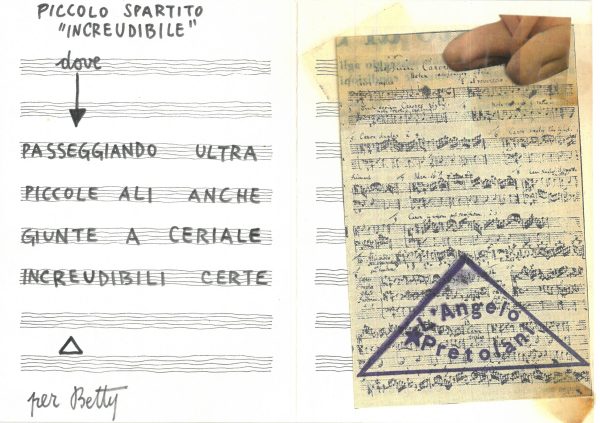 PICCOLO SPARTITO
"INCREUDIBILE"
dove
PASSEGGIANDO ULTRA
PICCOLE ALI ANCHE
GIUNTE A CERIALE
INCREUDIBILI CERTE
per Betty
Angelo
Pretolani